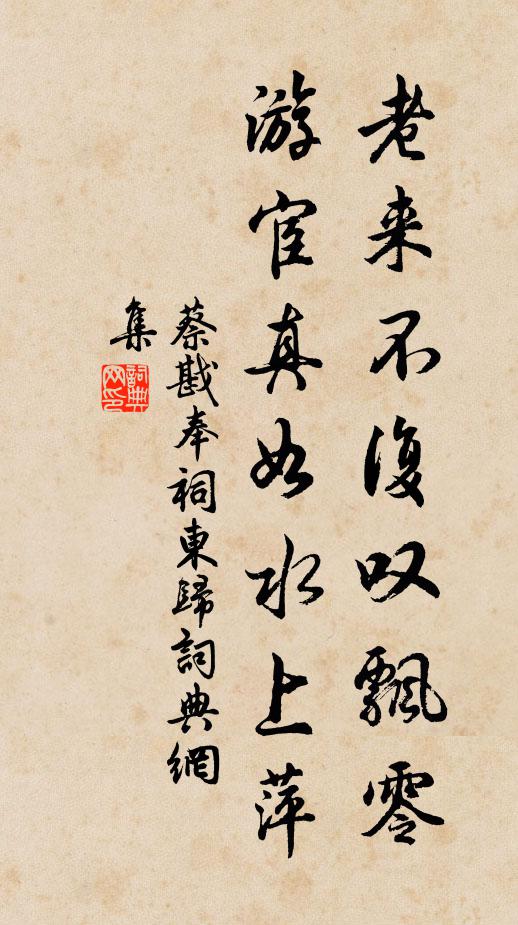 老来不復叹飄零
游宦真如水上萍
蔡戡奉祠東歸詞典網
集
詞典
网印